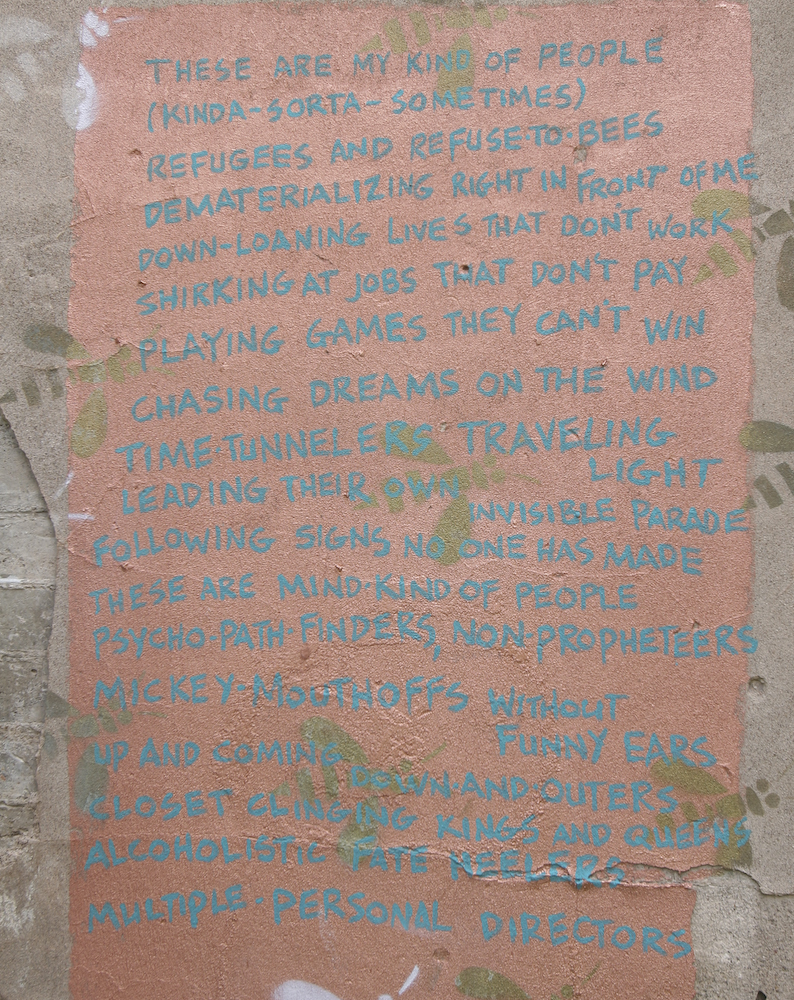 THESE ARE MY KIND OF PEOPLE
(KINDA-SORTA-SOMETIMES)
REFUGEES AND REFUSE·TO·BEES
DEMATERIALIZING RIGHT IN FRONT OF ME
DOWN-LOANING LIVES THAT DON'T WORK
SHIRKING AT JOBS THAT DON'T PAY
PLAYING GAMES THEY CAN'T WIN
CHASING DREAMS ON THE WIND
TIME·TUNNELERS TRAVELING
LIGHT
LEADING THEIR OWN
INVISIBLE PARADE
FOLLOWING SIGNS NO ONE HAS MADE
THESE ARE MIND·KIND OF PEOPLE
PSYCHO·PATH·FINDERS, NON·PROPHETEERS
MICKEY·MOUTHOFFS WITHOUT
FUNNY EARS
UP AND COMING
DOWN·AND·OUTERS
CLOSET CLINGING KINGS AND QUEENS
ALCOHOLISTIC FATE HEELERS
MULTIPLE·PERSONAL DIRECTORS